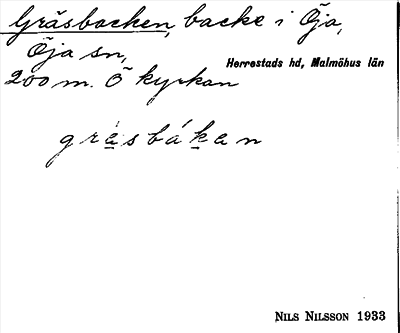 Gräsbacken, backe i Öja,
Öja sn,
Herrestads hd, Malmöhus län
200 m. Ö kyrkan
gràsbákan
NILS NILSSON 1933